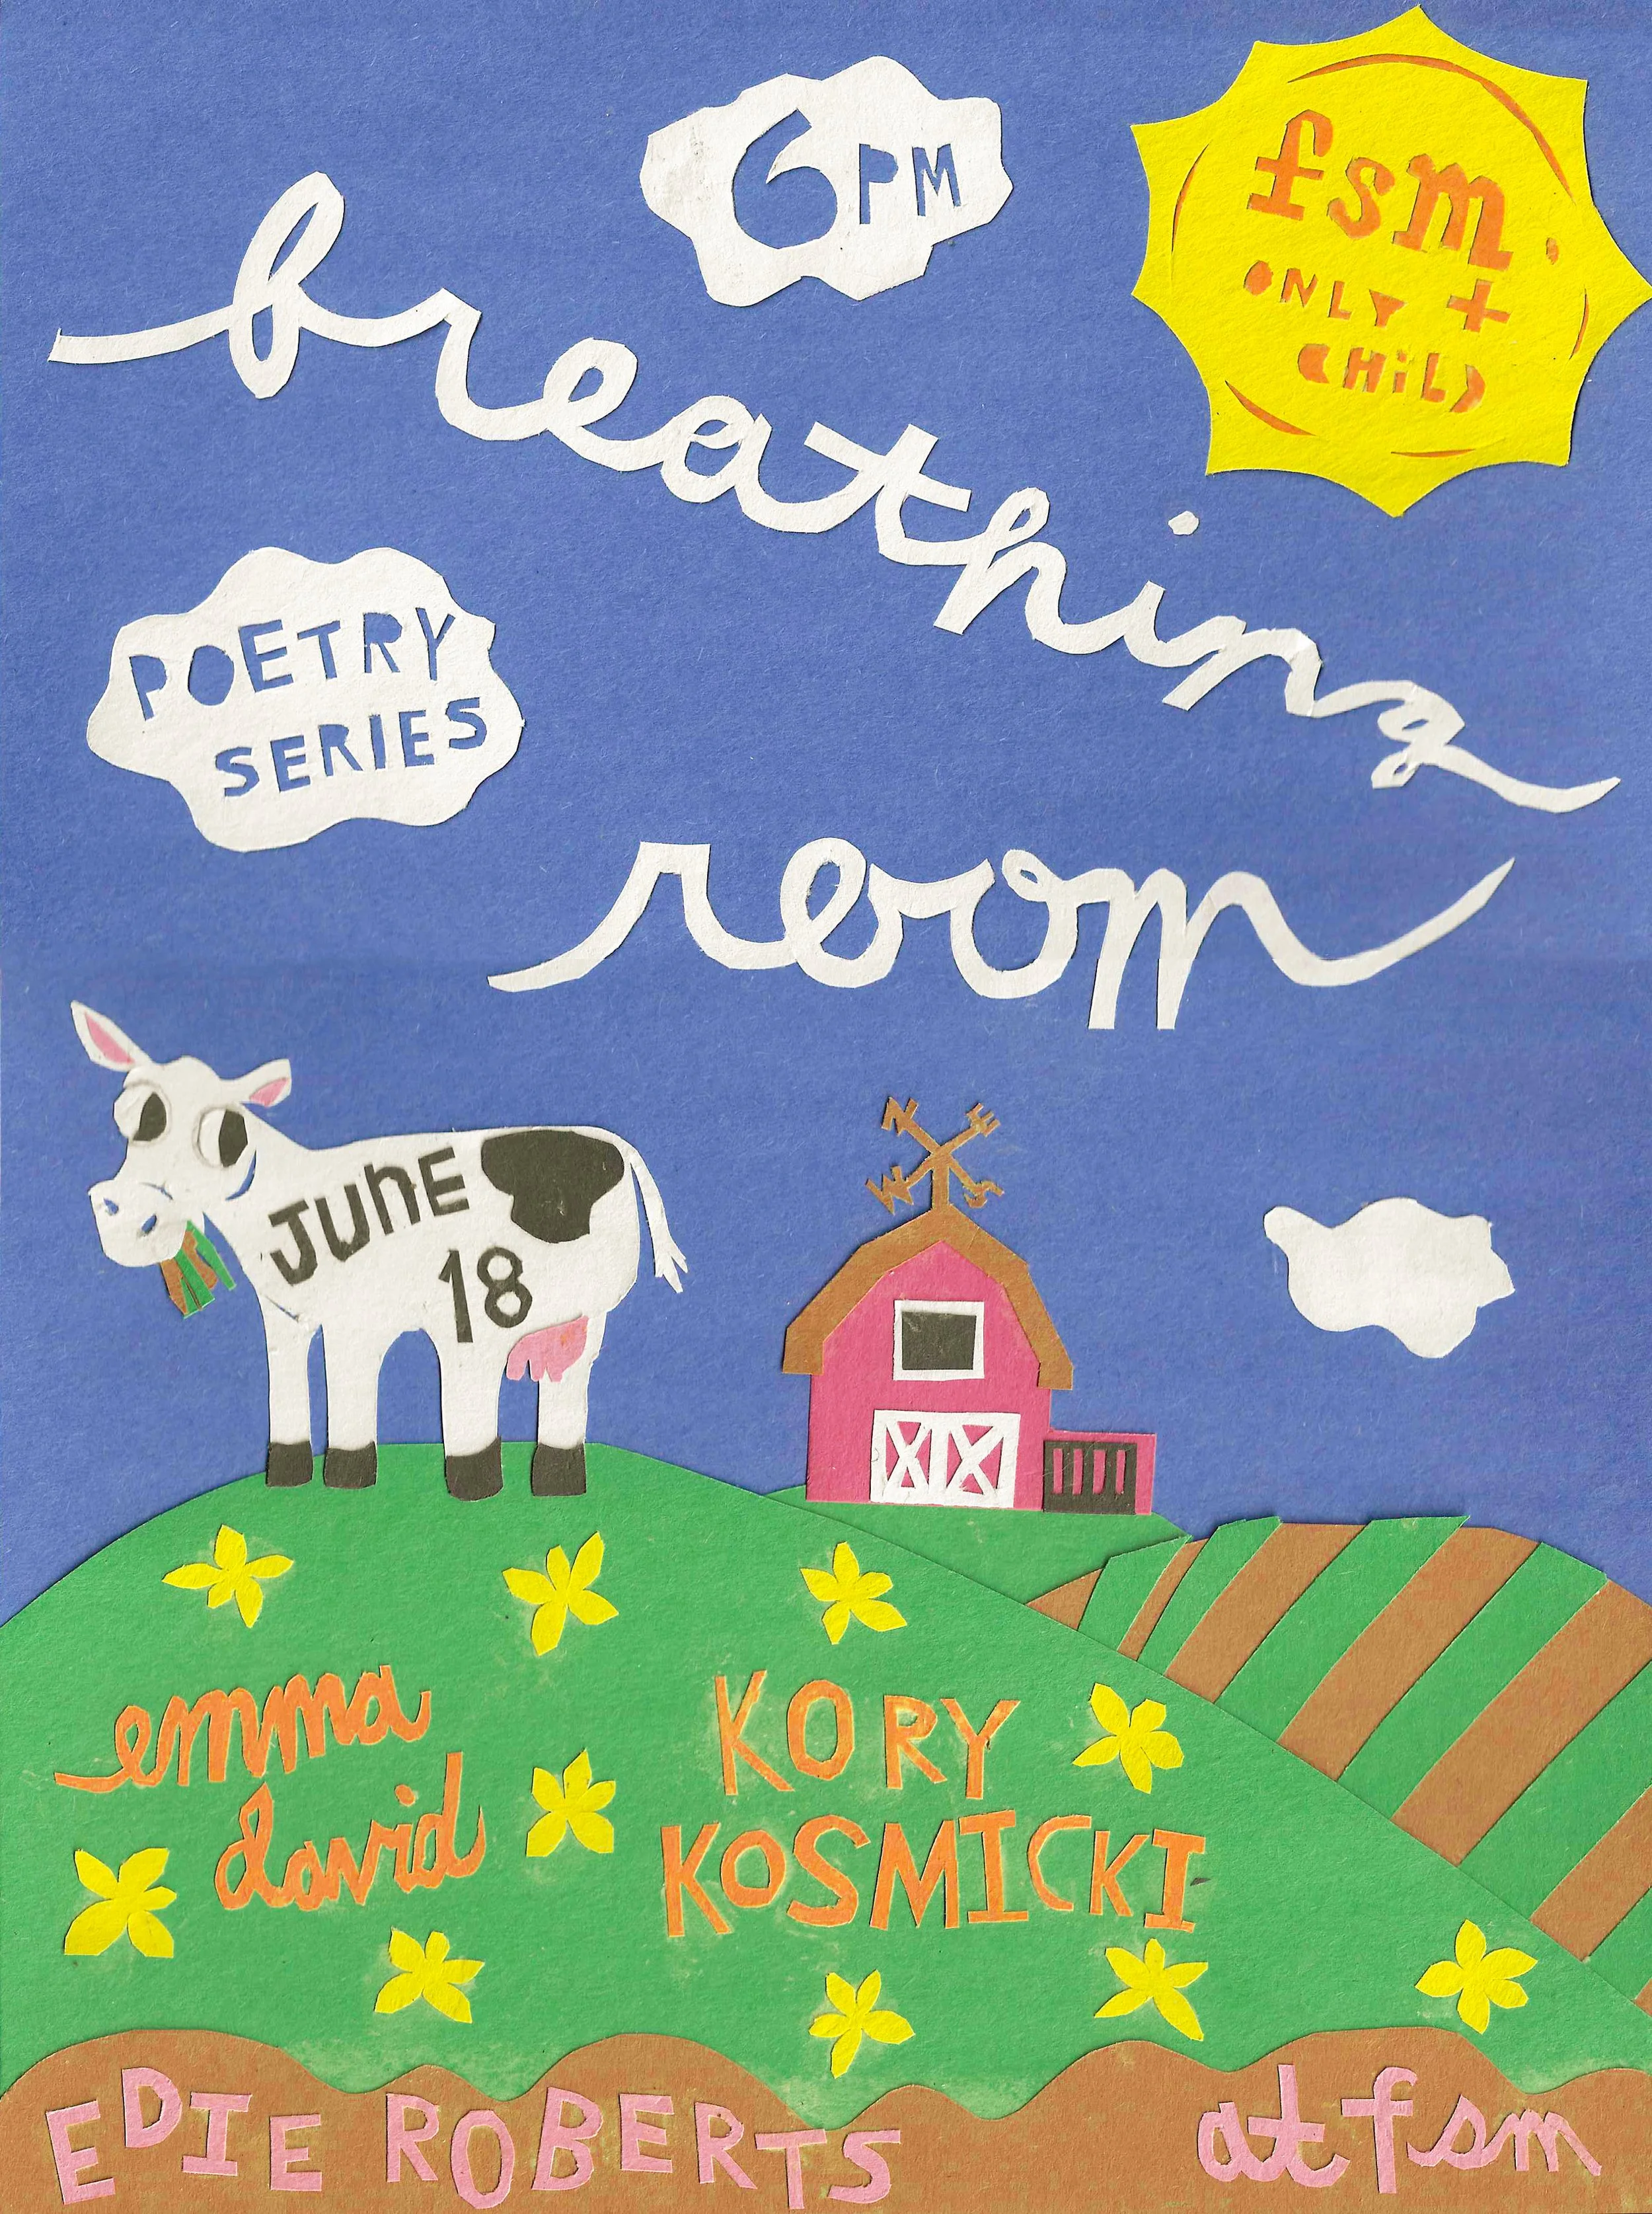 6PM
fsm.
ONLY +
CHiLD
breathing
POETRY
SERIES
room
N E
W S
JUNE
18
emma
david
KORY
KOSMICKI
EDIE ROBERTS
at fsm